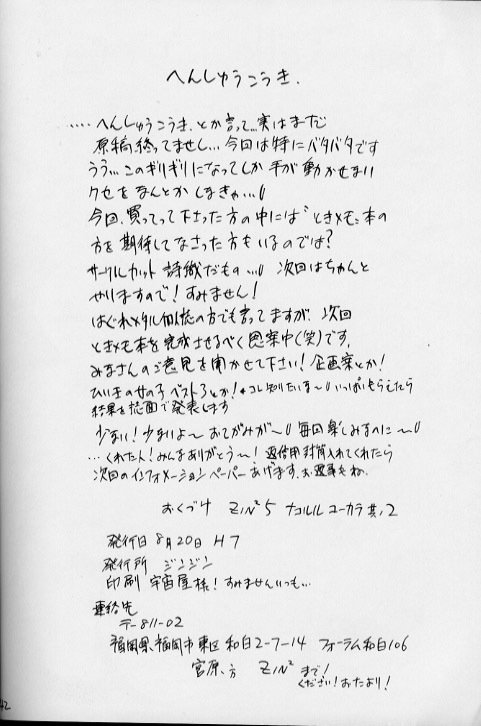 へんしゅうこうき.
‥‥へんしゅうこうき.とか言って…実はまだ
原稿終ってませし…今回は特にバタバタです
うう…このギリギリになってしか手が動かせない
クセをなんとかしなきゃ…
今回.買ってって下さった方の中には〝ときメモ〟本の
方を期待してなさった方もいるのでは?
サークルカット 詩織だもの… 次回はちゃんと
やりますので!すみません!
はぐれメタル似悠の方でも言ってますが. 次回
ときメモ本を完成させるべく思案中(笑)です.
みなさんのご意見を聞かせて下さい!企画案とか!
ひいきの女の子ベスト3とか!★コレ知りたいな〜いっぱいもらえたら
結果を誌面で発表します
少ない!少ないよ〜おてがみが〜 毎回楽しみなのに〜
…くれた人!みんなありがとう〜!返信用封筒入れてくれたら
次回のインフォメーションペーパーあげます.お返事もね.
おくづけ ZIN²5 ナコルル ユーカラ 其ノ2
発行日 8月20日 H7
発行所 ジンジン
印刷 宇宙屋様!すみませんいつも…
連絡先
〒-811-02
福岡県.福岡市東区 和白2-7-14 フォーラム和白106
宮原.方 ZIN² まで!
ください!おたより!
42